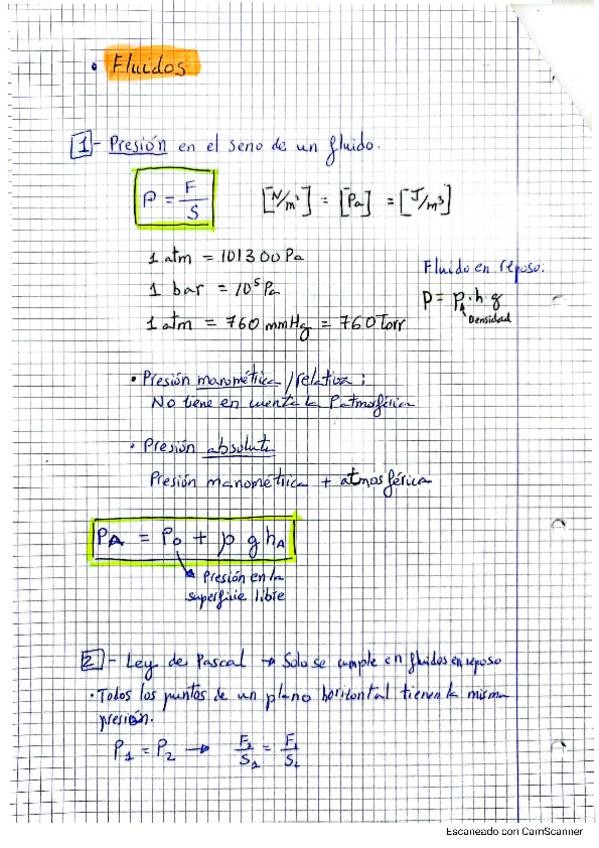 • Fluidos
1 - Presión en el seno de un fluido.
P = F/S [N/m²] = [Pa] = [J/m³]
1 atm = 101300 Pa
1 bar = 10⁵ Pa
1 atm = 760 mmHg = 760 Torr
Fluido en reposo:
P = ρ · h · g
Densidad
• Presión manométrica / relativa:
No tiene en cuenta la Patmosférica
• Presión absoluta
Presión manométrica + atmosférica
P_A = P_0 + ρ g h_A
Presión en la
superficie libre
2 - Ley de Pascal → Solo se cumple en fluidos en reposo
• Todos los puntos de un plano horizontal tienen la misma
presión.
P_1 = P_2 →
Escaneado con CamScanner